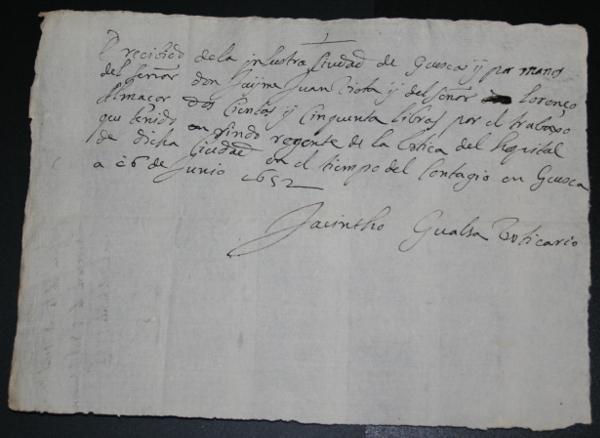 E recibido de la inlustra Ciudad de Guesca y por manos
del señor don Jayme Juan Viota y del señor Lorenço
Almaçor dos Cientos y Cinquenta libras por el trabaxo
que tenido en siendo regente de la botica del spital
de dicha Ciudad en el tiempo del Contagio en Guesca
a 26 de Junio 1652
Jacintho Gualsa Boticario